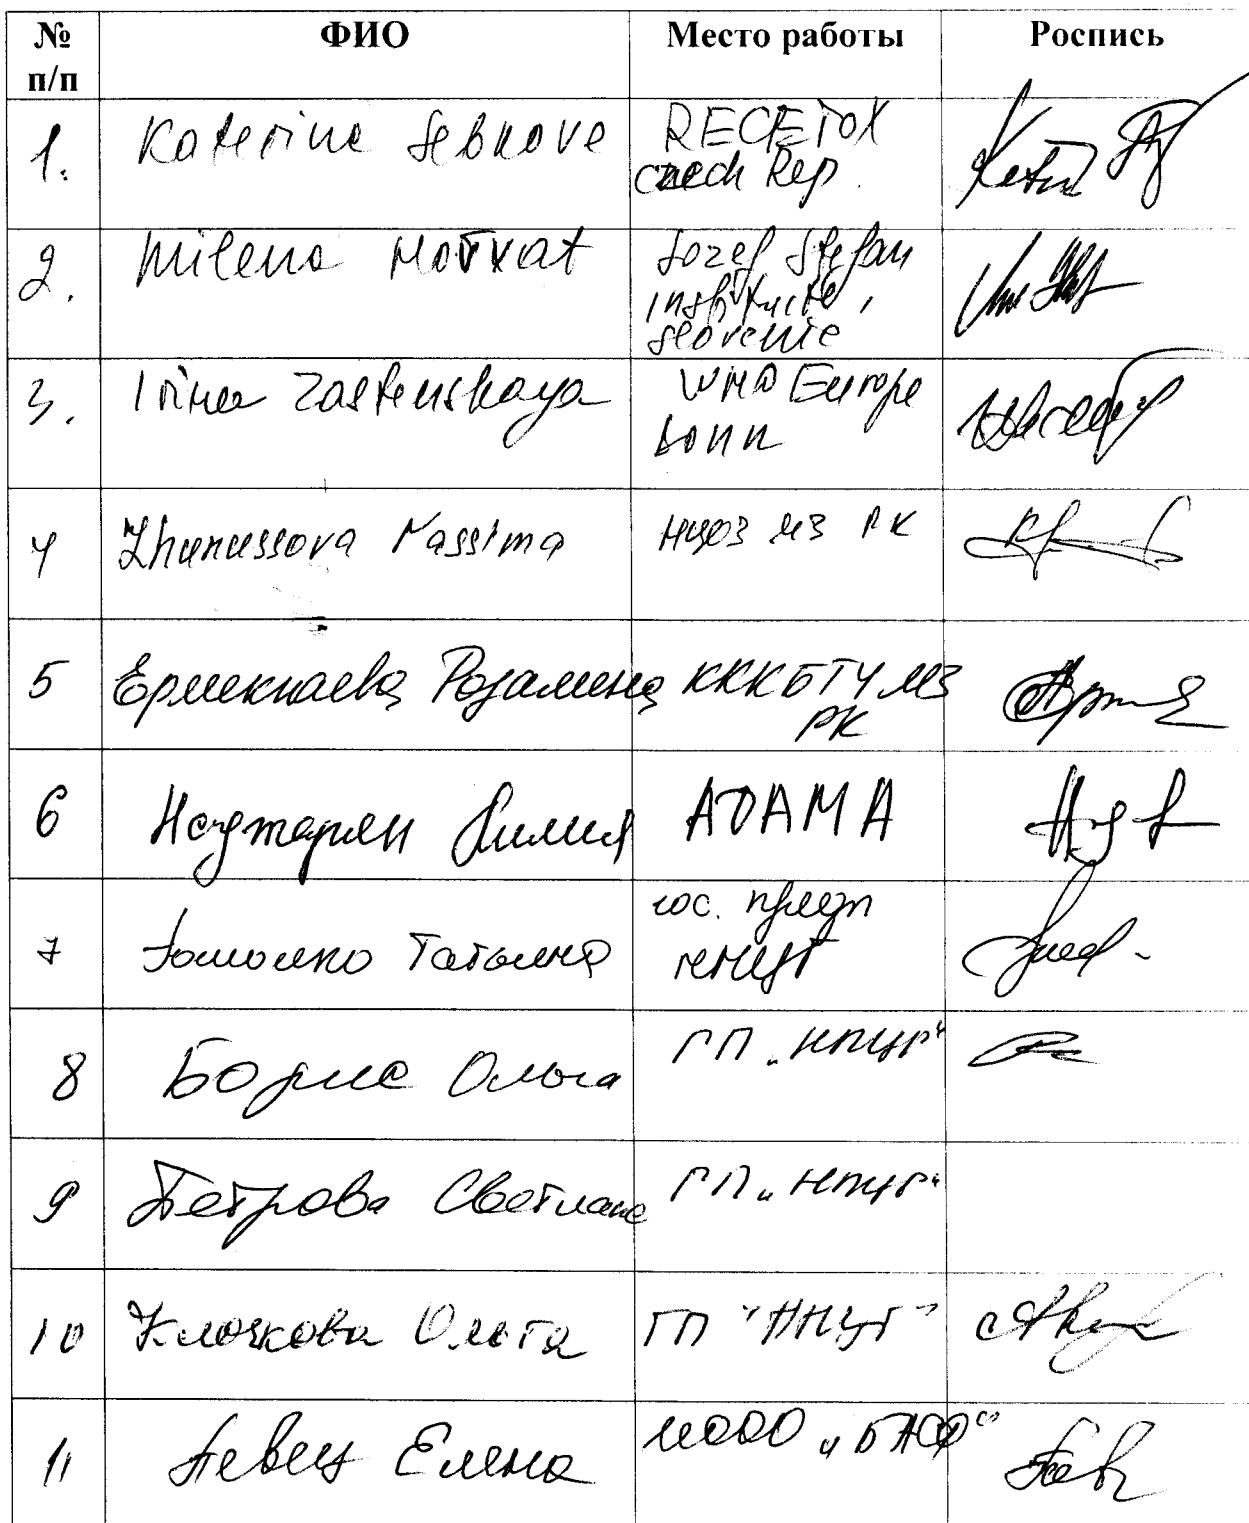 № п/п ФИО Место работы Роспись
1. Katerina Sebkova RECETOX
Czech Rep.
2. Milena Horvat Jozef Stefan
Institute,
Slovenie
3. Irina Zastenskaya WHO Europe
Bonn
4 Zhunussova Kassima НЦОЗ МЗ РК
5 Ермекпаева Розалина КККБТУ МЗ
РК
6 Лилия ADAMA
7 Татьяна гос. предп
НПЦГ
8 Борис Ольга ГП „НПЦГ"
9 Петрова Светлана ГП „НПЦГ"
10 Клочкова Ольга ГП "НПЦГ"
11 Певец Елена ИООО „БАСФ"